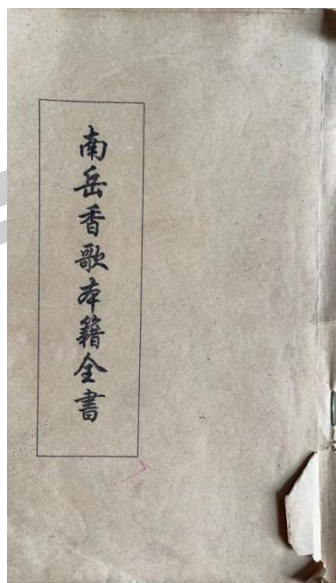 南岳香歌本籍全書